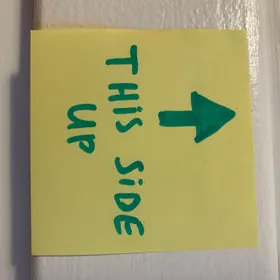 THiS SiDE
UP